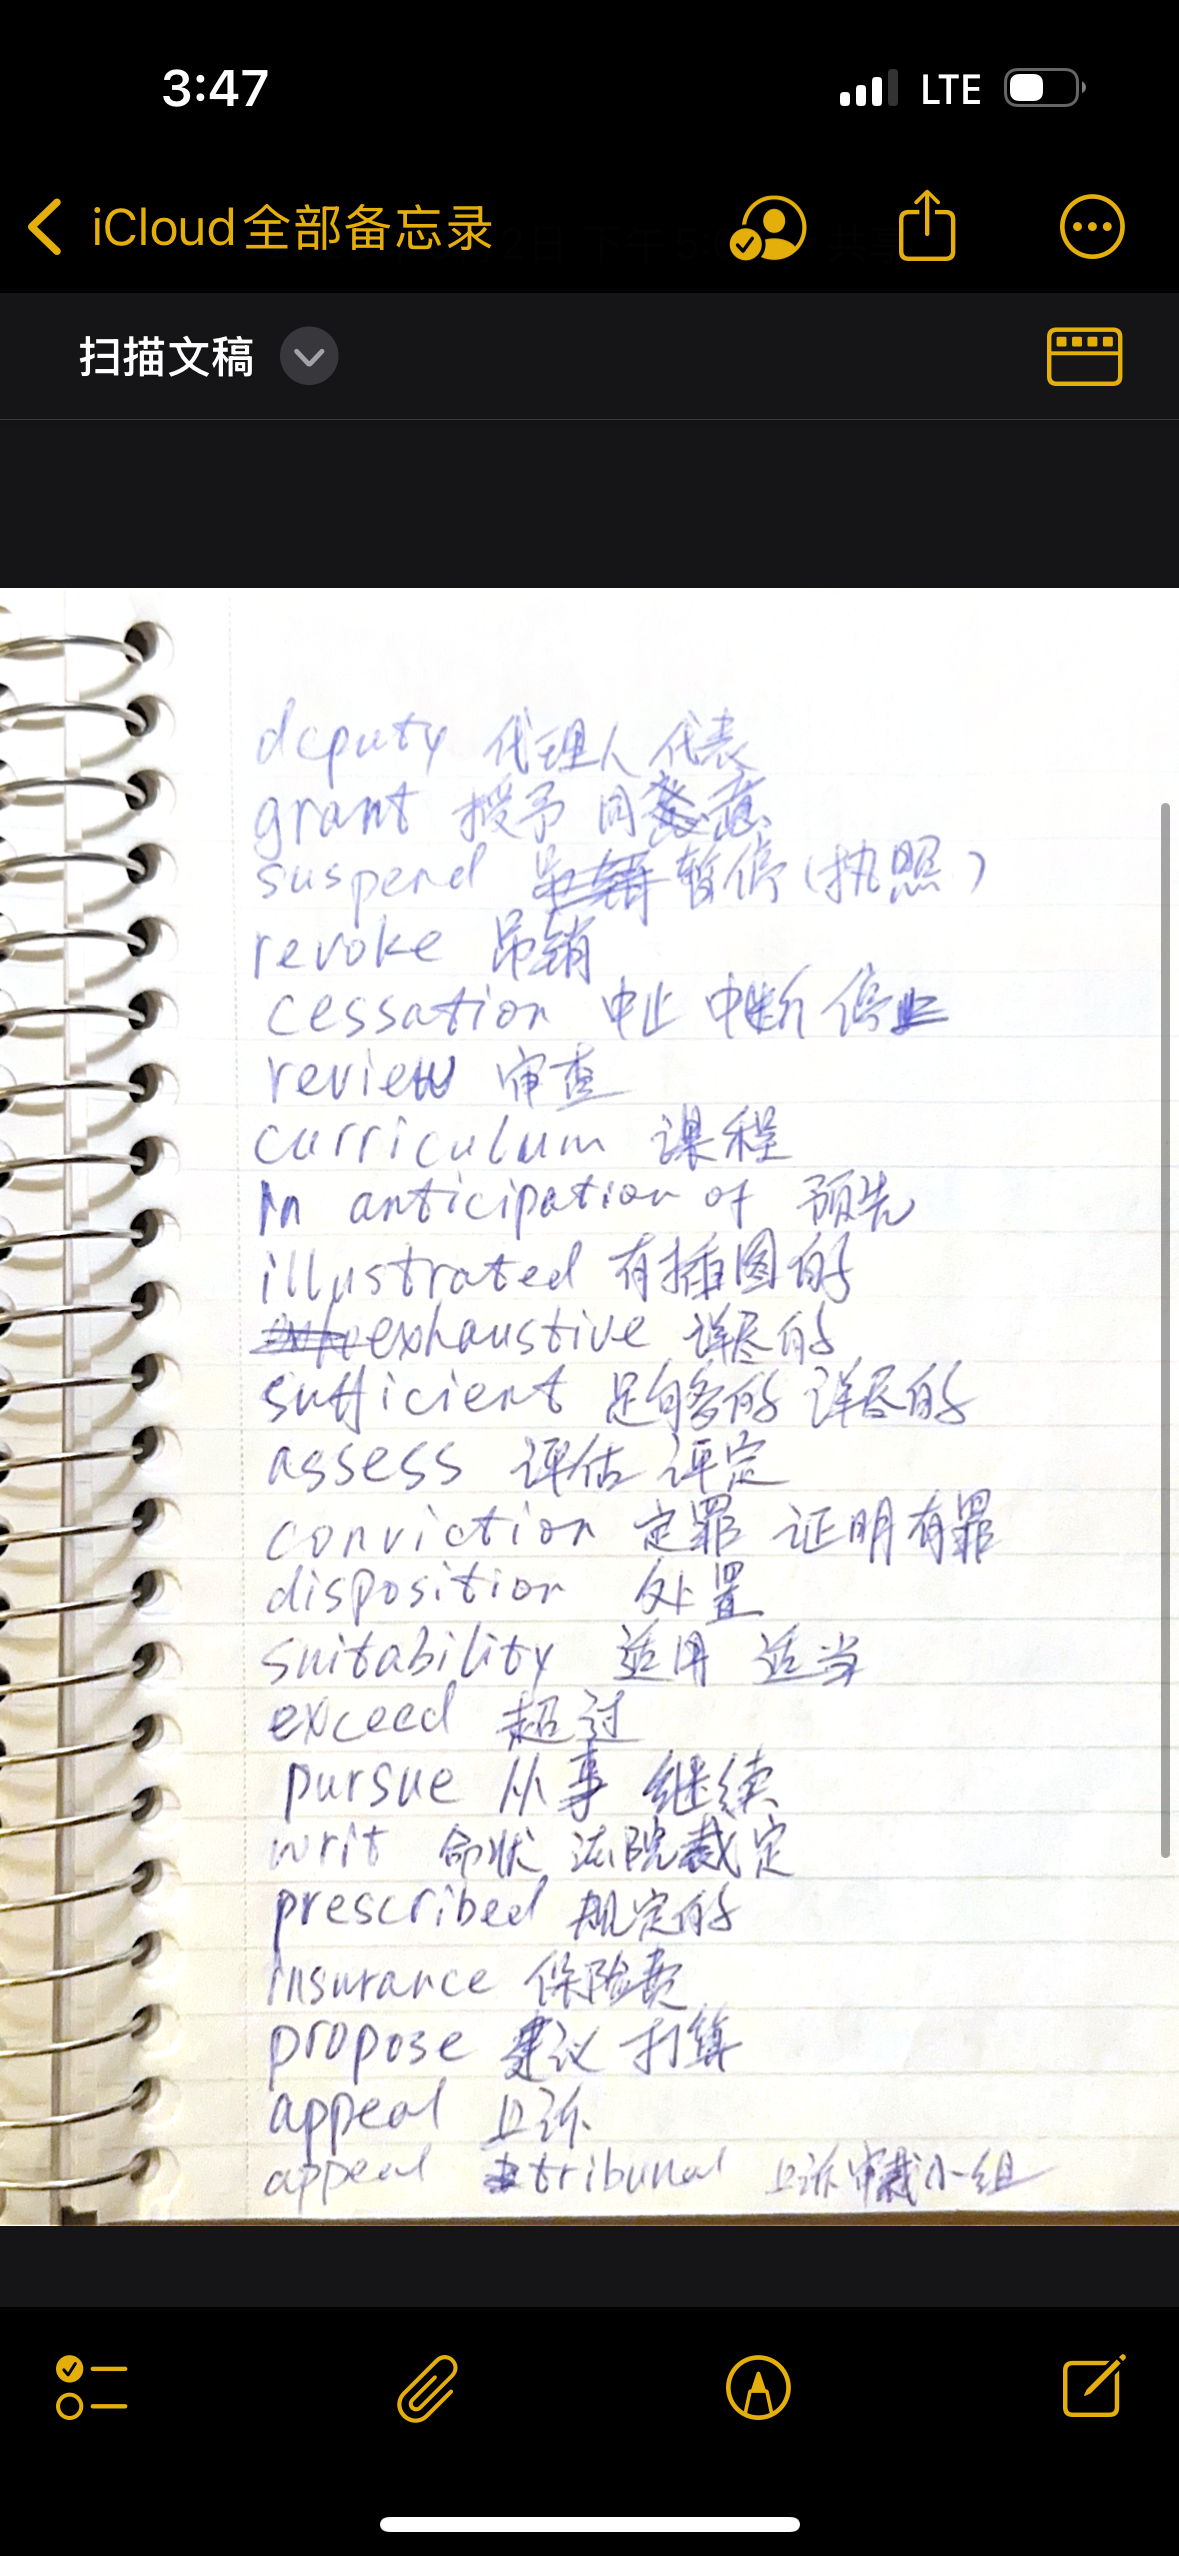 3:47 LTE
iCloud全部备忘录
扫描文稿
deputy 代理人 代表
grant 授予 同意
suspend 暂停(执照)
revoke 吊销
cessation 中止 中断 停止
review 审查
curriculum 课程
In anticipation of 预先
illustrated 有插图的
exhaustive 详尽的
sufficient 足够的 详尽的
assess 评估 评定
conviction 定罪 证明有罪
disposition 处置
suitability 适用 适当
exceed 超过
pursue 从事 继续
writ 命状 法院裁定
prescribed 规定的
insurance 保险费
propose 建议 打算
appeal 上诉
appeal tribunal 上诉审裁小组